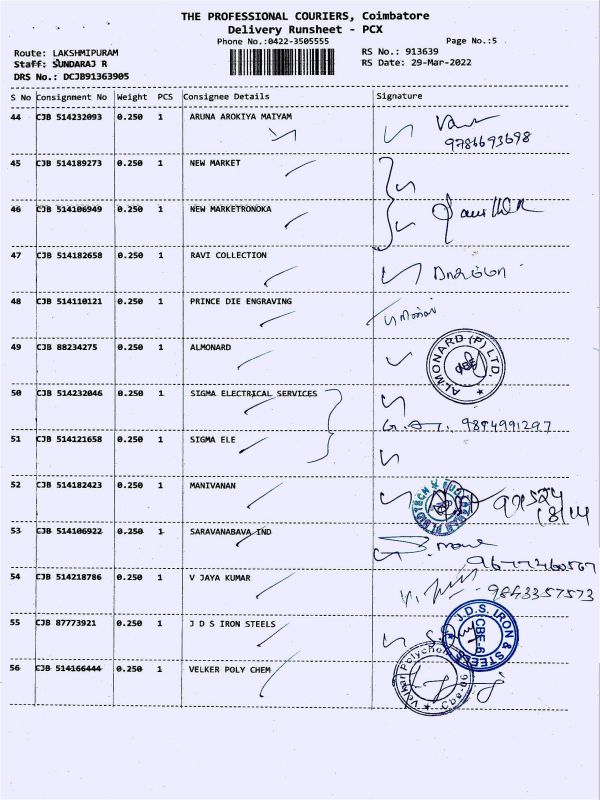 THE PROFESSIONAL COURIERS, Coimbatore
Delivery Runsheet - PCX
Phone No.:0422-3505555 Page No.:5
Route: LAKSHMIPURAM RS No.: 913639
Staff: SUNDARAJ R RS Date: 29-Mar-2022
DRS No.: DCJB91363905
S No Consignment No Weight PCS Consignee Details Signature
44 CJB 514232093 0.250 1 ARUNA AROKIYA MAIYAM
9786693698
45 CJB 514189273 0.250 1 NEW MARKET
46 CJB 514106949 0.250 1 NEW MARKETRONOKA
47 CJB 514182658 0.250 1 RAVI COLLECTION
48 CJB 514110121 0.250 1 PRINCE DIE ENGRAVING
49 CJB 88234275 0.250 1 ALMONARD
ALMONARD (P) LTD.
50 CJB 514232046 0.250 1 SIGMA ELECTRICAL SERVICES
9894991297
51 CJB 514121658 0.250 1 SIGMA ELE
52 CJB 514182423 0.250 1 MANIVANAN
53 CJB 514106922 0.250 1 SARAVANABAVA IND
54 CJB 514218786 0.250 1 V JAYA KUMAR
9843357573
55 CJB 87773921 0.250 1 J D S IRON STEELS
J.D.S. IRON & STEELS
CBE-6
56 CJB 514166444 0.250 1 VELKER POLY CHEM
Velker Polychem